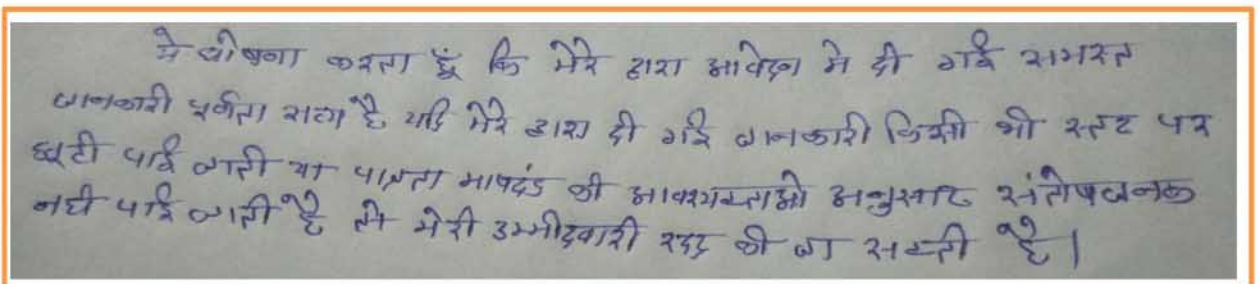 मे घोषना करता हूँ कि मेरे द्वारा आवेदन मे दी गई समस्त
जानकारी पूर्णता सत्य है यदि मेरे द्वारा दी गई जानकारी किसी भी स्तर पर
झूटी पाई जाती या पात्रता मापदंड की आवश्यकताओ अनुसार संतोषजनक
नही पाई जाती है तो मेरी उम्मीदवारी रदद की जा सकती है।